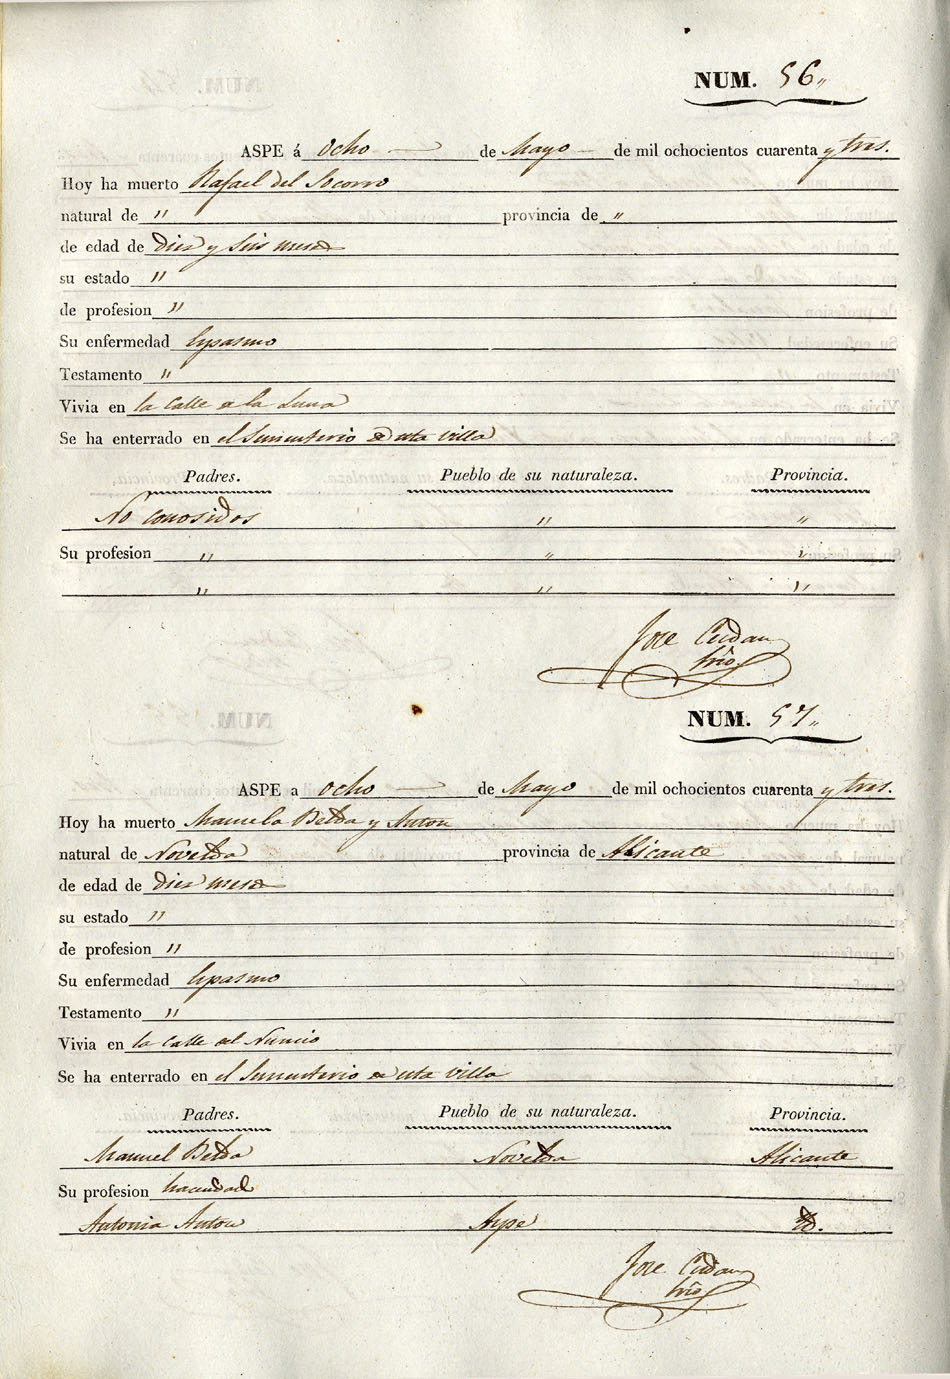 NUM. 56„
ASPE á ocho de Mayo de mil ochocientos cuarenta y tres.
Hoy ha muerto Rafael del Socorro
natural de „ provincia de „
de edad de diez y seis meses
su estado „
de profesion „
Su enfermedad Espasmo
Testamento „
Vivia en la calle de la Luna
Se ha enterrado en el Sementerio de esta villa
Padres. Pueblo de su naturaleza. Provincia.
No conosidos „ „
Su profesion „ „ „
„ „ „
Jose
NUM. 57„
ASPE a ocho de Mayo de mil ochocientos cuarenta y tres.
Hoy ha muerto Manuela Belda y Anton
natural de Novelda provincia de Alicante
de edad de diez meses
su estado „
de profesion „
Su enfermedad Espasmo
Testamento „
Vivia en la calle del Nuncio
Se ha enterrado en el Sementerio de esta villa
Padres. Pueblo de su naturaleza. Provincia.
Manuel Belda Novelda Alicante
Su profesion
Antonia Anton Aspe id.
Jose